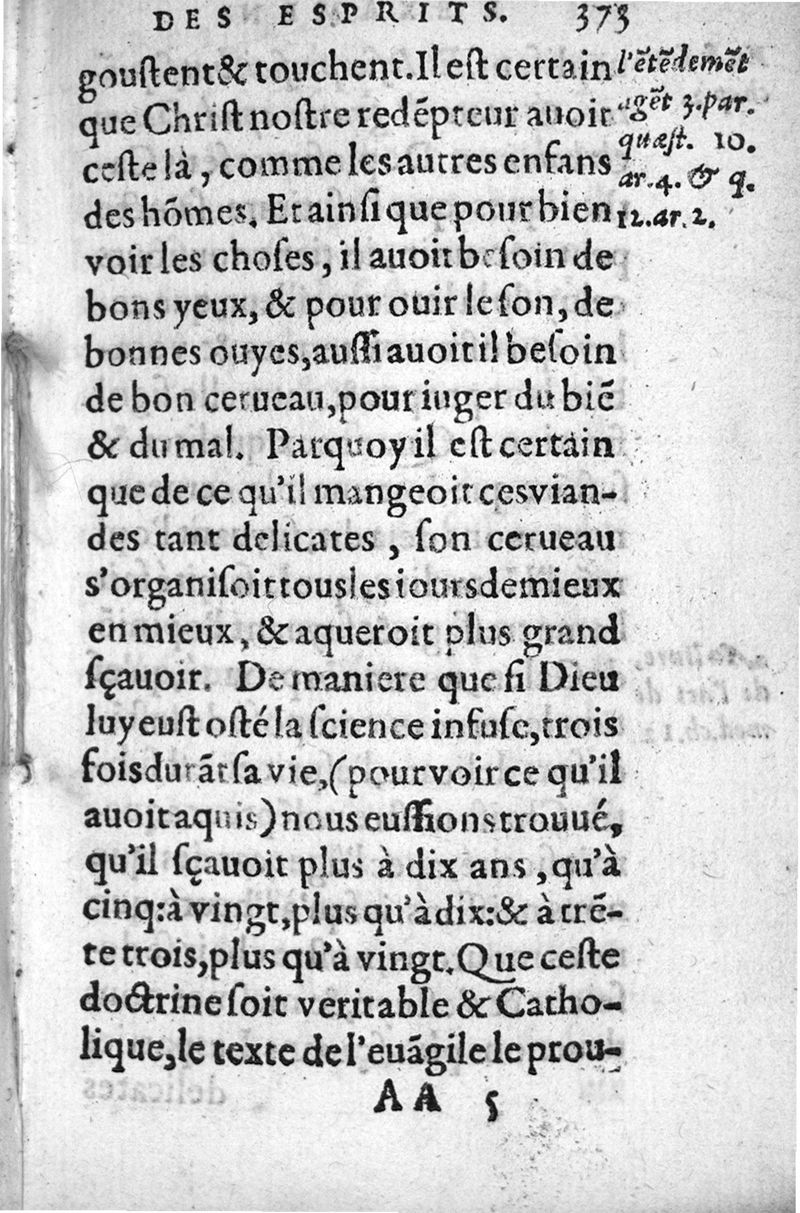 DES ESPRITS. 373
gouſtent & touchent. Il eſt certain
que Chriſt noſtre redẽpteur auoit
ceſte là, comme les autres enfans
des hõmes. Et ainſi que pour bien
voir les choſes, il auoit beſoin de
bons yeux, & pour ouir le ſon, de
bonnes ouyes, auſſi auoit il beſoin
de bon cerueau, pour iuger du biẽ
& du mal. Parquoy il eſt certain
que de ce qu'il mangeoit ces vian-
des tant delicates, ſon cerueau
s'organiſoit tous les iours de mieux
en mieux, & aqueroit plus grand
ſçauoir. De maniere que ſi Dieu
luy euſt oſté la ſcience infuſe, trois
fois durãt ſa vie, (pour voir ce qu'il
auoit aquis) nous euſſions trouué,
qu'il ſçauoit plus à dix ans, qu'à
cinq: à vingt, plus qu'à dix: & à trẽ-
te trois, plus qu'à vingt. Que ceſte
doctrine ſoit veritable & Catho-
lique, le texte de l'euãgile le prou-
AA 5
l'ẽtẽdemẽt
agẽt 3. par.
quæſt. 10.
ar. 4. & q.
12. ar. 2.